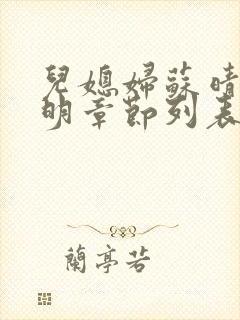 兒媳婦蘇晴
明章節列表
蘭亭若